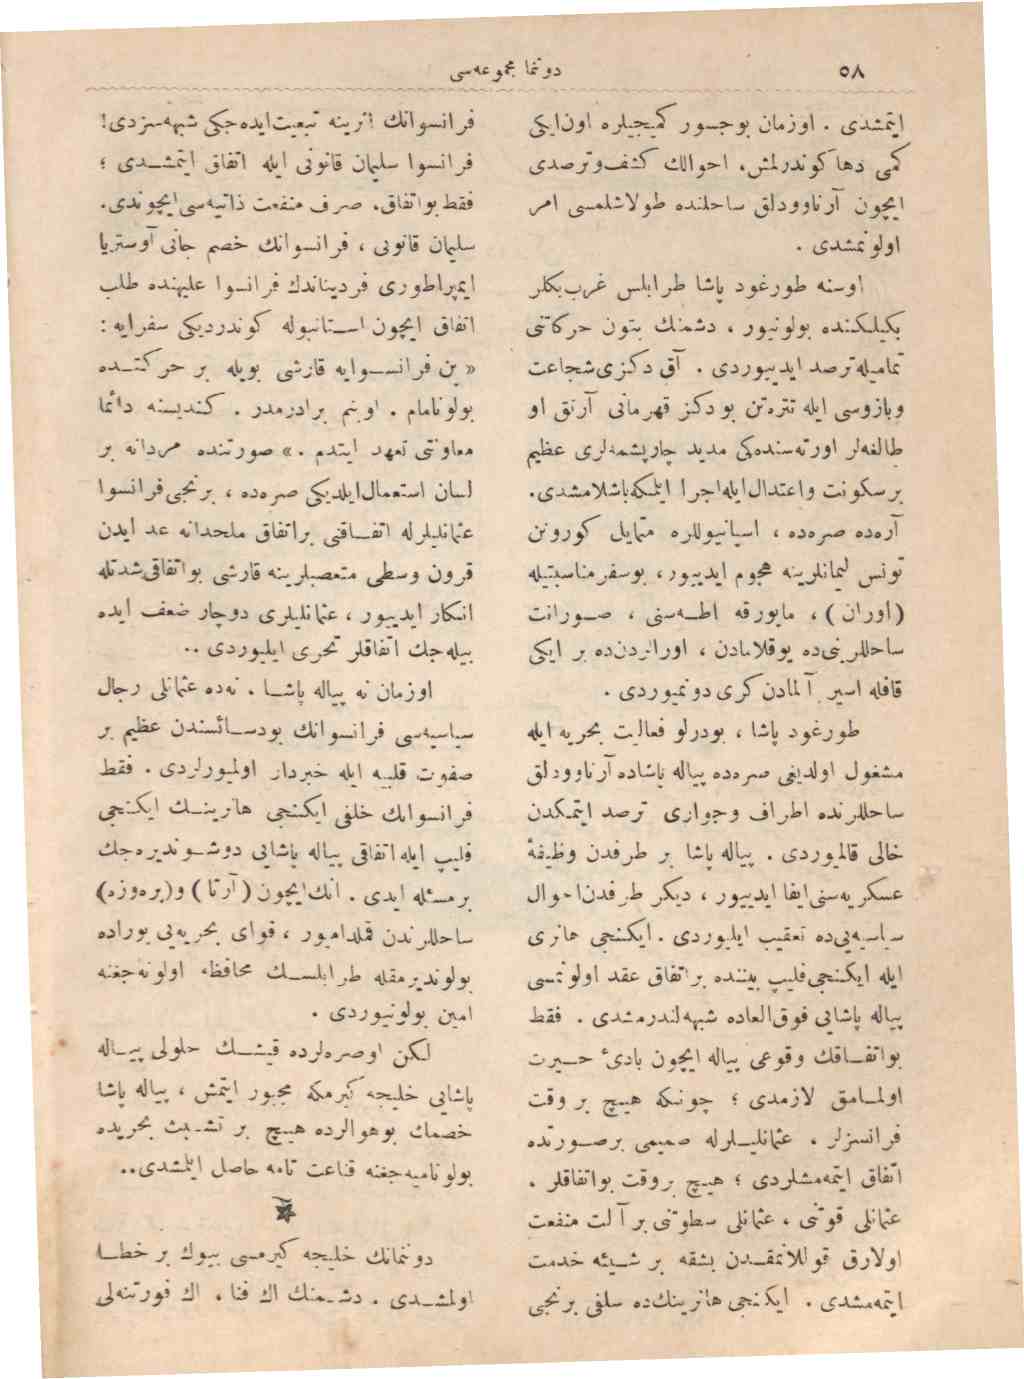 ٥٨
دوننما مجموعه‌سی
ایتمشدی . اوزمان بوجسور كمیجیلره اون‌ایكی
كمی دها كوندرلمش، احوالك كشف‌وترصدی
ایچون آرناوودلق ساحلنده طولاشلمسی امر
اولونمشدی .
اوسنه طورغود پاشا طرابلس غرب‌بكلر
بكیلكنده بولونیور ، دشمنك بتون حركاتنی
تمامیله‌ترصد ایدییوردی . آق دكزی‌شجاعت
وبازوسی ایله تتره‌تن بو دكز قهرمانی آرتق او
طالغه‌لر اورته‌سنده‌كی مدید چارپشمه‌لری عظیم
برسكونت واعتدال‌ایله‌اجرا ایتمكه‌باشلامشدی.
آره‌ده صره‌ده ، اسپانیوللره متمایل كورونن
تونس لیمانلرینه هجوم ایدییور، بوسفرمناسبتیله
(اوران) ، مایورقه اطه‌سنی ، صورانت
ساحللرینی‌ده یوقلامادن ، اورالردن‌ده بر ایكی
قافله اسیر آلمادن كری دونمیوردی .
طورغود پاشا ، بودرلو فعالیت بحریه ایله
مشغول اولدیغی صره‌ده پیاله پاشاده آرناوودلق
ساحللرنده اطراف وجواری ترصد ایتمكدن
خالی قالمیوردی . پیاله پاشا بر طرفدن وظیفهٔ
عسكریه‌سنی ایفا ایدییور ، دیكر طرفدن احوال
سیاسیه‌یی‌ده تعقیب ایلیوردی . ایكنجی هانری
ایله ایكنجی‌فلیپ بیننده براتفاق عقد اولونمسی
پیاله پاشایی فوق‌العاده شبهه‌لندرمشدی . فقط
بواتفاقك وقوعی پیاله ایچون بادئ حیرت
اولمامق لازمدی ؛ چونكه هیچ بر وقت
فرانسزلر ، عثمانلیلرله صمیمی برصورتده
اتفاق ایتمه‌مشلردی ؛ هیچ بروقت بواتفاقلر ،
عثمانلی قوتنی ، عثمانلی سطوتنی بر آلت منفعت
اولارق قوللانمقدن بشقه بر شیئه خدمت
ایتمه‌مشدی . ایكنجی هانرینك‌ده سلفی برنجی
فرانسوانك اثرینه تبعیت‌ایده‌جكی شبهه‌سزدی!
فرانسوا سلیمان قانونی ایله اتفاق ایتمشدی ؛
فقط‌بواتفاق، صرف منفعت ذاتیه‌سی‌ایچوندی.
سلیمان قانونی ، فرانسوانك خصم جانی آوستریا
ایمپراطوری فردیناندك فرانسوا علیهنده طلب
اتفاق ایچون استانبوله كوندردیكی سفرایه :
« بن فرانسوایه قارشی بویله بر حركتده
بولونامام . اوبنم برادرمدر . كندیسنه دائما
معاونتی تعهد ایتدم .» صورتنده مردانه بر
لسان استعمال‌ایلدیكی صره‌ده ، برنجی‌فرانسوا
عثمانلیلرله اتفاقنی براتفاق ملحدانه عد ایدن
قرون وسطی متعصبلرینه قارشی بواتفاقی‌شدتله
انكار ایدییور ، عثمانلیلری دوچار ضعف ایده
بیله‌جك اتفاقلر تحری ایلیوردی ..
اوزمان نه پیاله پاشا . نه‌ده عثمانلی رجال
سیاسیه‌سی فرانسوانك بودسائسندن عظیم بر
صفوت قلبیه ایله خبردار اولمیورلردی . فقط
فرانسوانك خلفی ایكنجی هانرینك ایكنجی
فلیپ ایله‌اتفاقی پیاله پاشایی دوشوندیره‌جك
برمسئله ایدی . انك‌ایچون (آرتا) و(پره‌وزه)
ساحللرندن قملدامیور ، قوای بحریه‌یی بوراده
بولوندیرمقله طرابلسك محافظه اولونه‌جغنه
امین بولونیوردی .
لكن اوصره‌لرده قیشك حلولی پیاله
پاشایی خلیجه كیرمكه مجبور ایتمش ، پیاله پاشا
خصمك بوهوالرده هیچ بر تشبث بحریده
بولونامیه‌جغنه قناعت تامه حاصل ایلمشدی..
دوننمانك خلیجه كیرمسی بیوك بر خطا
اولمشدی . دشمنك اك فنا ، اك فورتنه‌لی